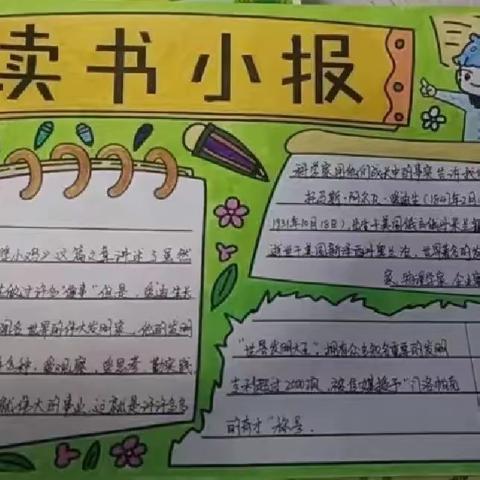 读书小报
科学家用他们成长中的事实告诉我
托马斯·阿尔瓦·爱迪生(1847年2月
1931年10月18日),出生于美国俄亥俄州米兰
逝世于美国新泽西州西奥兰治,世界著名的发
家、物理学家、企业家
》这篇文章讲述了虽然
做过许多“傻事”但是,爱迪生长
闻名世界的伟大发明家,他的发明
种,爱观察,爱思考,勤实践
就伟大的事业,这就是许许多多
“世界发明大王”,拥有众多知名重要的发明
专利超过2000项,被传媒授予“门洛帕克
的奇才”称号.